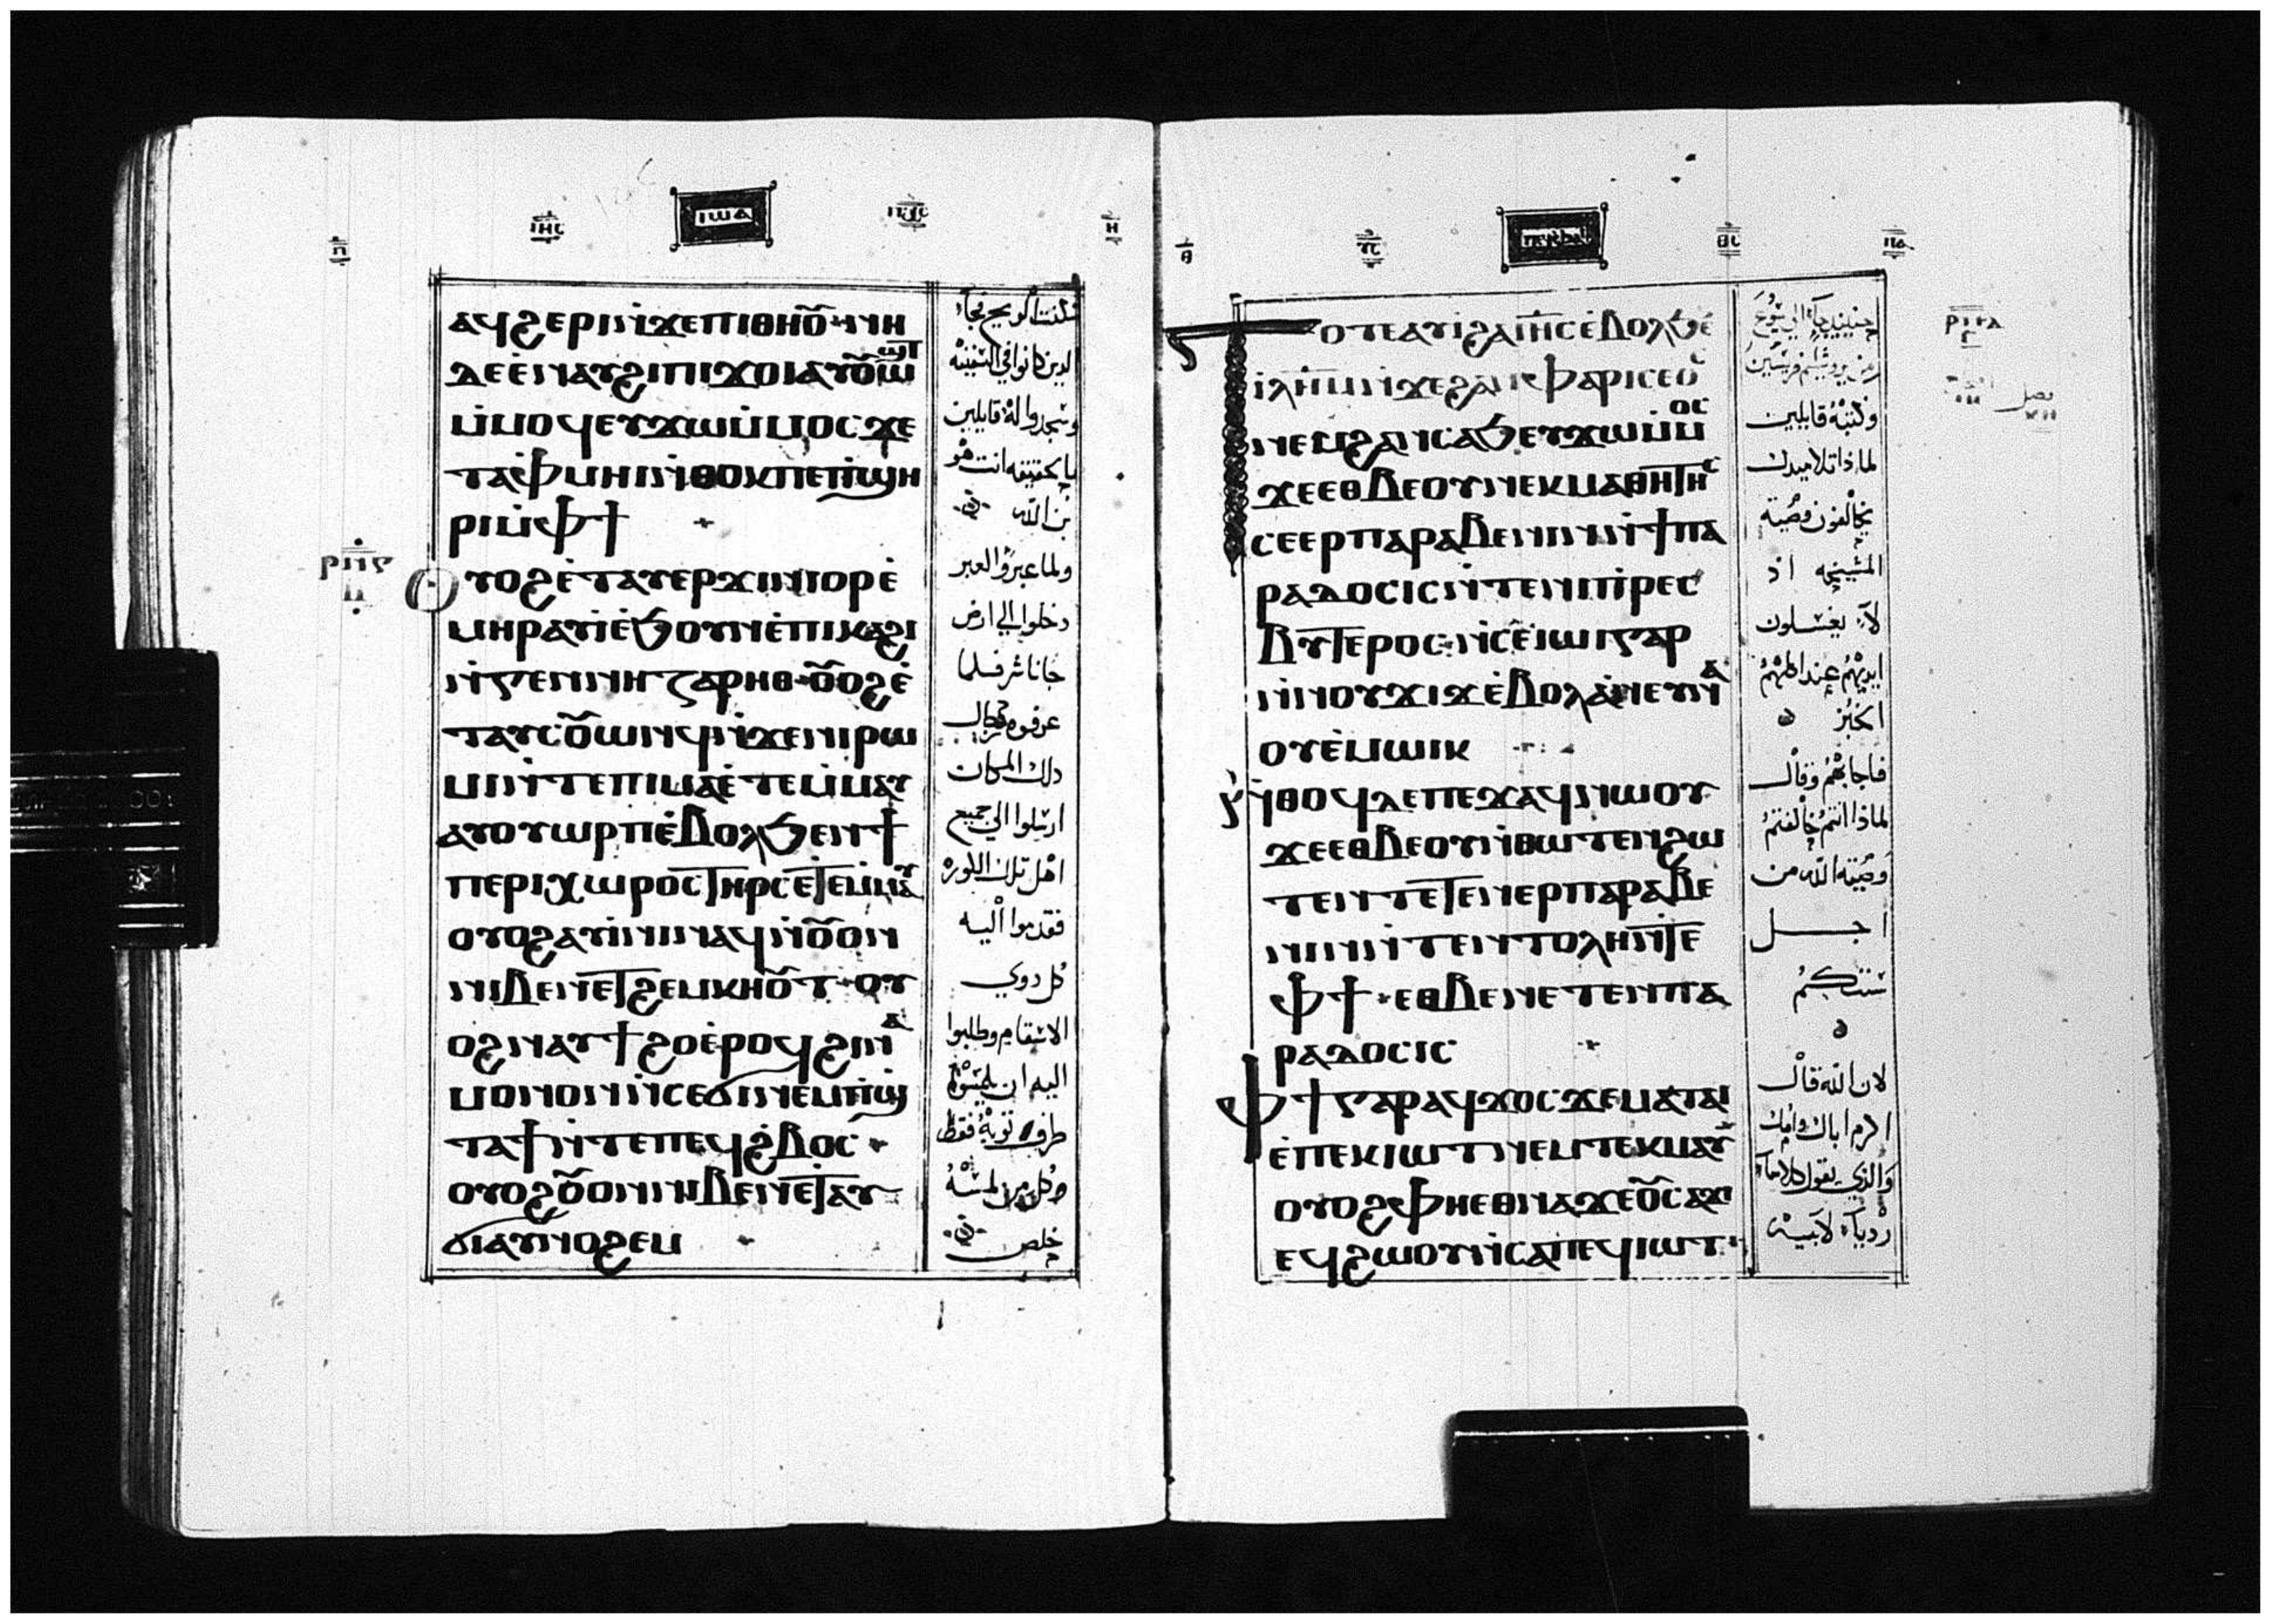 ⲡ̅ ⲓⲏⲥ ⲓⲱⲁ ⲡⲭⲥ ⲏ̅
ⲁϥϩⲉⲣⲓ ⲛ̀ϫⲉⲡⲓⲑⲏⲟ̅ⲩ ⲛⲏ
ⲇⲉ ⲉ̀ⲛⲁⲩϩⲓ ⲡⲓϫⲟⲓ ⲁⲩⲟ̅ⲩⲱϣⲧ
ⲙ̀ⲙⲟϥ ⲉⲩϫⲱ ⲙ̀ⲙⲟⲥ ϫⲉ
ⲧⲁⲫⲙⲏⲓ ⲛ̀ⲑⲟⲕ ⲡⲉ ⲡ̀ϣⲏ
ⲣⲓ ⲙ̀ⲫϯ
ⲟⲩⲟϩ ⲉ̀ⲧⲁⲩⲉⲣϫⲓⲛⲓⲟⲣ ⲉ̀
ⲙⲏⲣ ⲁⲩⲓ̀ ⲉ̀ϧⲟⲩⲛ ⲉ̀ⲡⲓⲕⲁϩⲓ
ⲛ̀ⲅⲉⲛⲛⲏⲥⲁⲣⲏⲑ ⲟ̅ⲩⲟϩ ⲉ̀
ⲧⲁⲩⲥⲟ̅ⲩⲱⲛϥ ⲛ̀ϫⲉⲛⲓⲣⲱ
ⲙⲓ ⲛ̀ⲧⲉⲡⲓⲙⲁ ⲉ̀ⲧⲉⲙ̀ⲙⲁⲩ
ⲁⲩⲟⲩⲱⲣⲡ ⲉ̀ⲃⲟⲗ ϧⲉⲛ ϯ
ⲡⲉⲣⲓⲭⲱⲣⲟⲥ ⲧⲏⲣⲥ ⲉⲧⲉⲙ̀ⲙⲁⲩ
ⲟⲩⲟϩ ⲁⲩⲓ̀ⲛⲓ ⲛⲁϥ ⲛ̀ⲟ̅ⲩⲟⲛ
ⲛⲓⲃⲉⲛ ⲉⲧϩⲉⲙⲕⲏⲟ̅ⲩⲧ ⲟⲩ
ⲟϩ ⲛⲁⲩϯϩⲟ ⲉ̀ⲣⲟϥ ϩⲓⲛⲁ
ⲙⲟⲛⲟⲛ ⲛ̀ⲥⲉϭⲓ ⲛⲉⲙ ⲡ̀ϣ
ⲧⲁϯ ⲛ̀ⲧⲉ ⲡⲉϥϩ̀ⲃⲟⲥ
ⲟⲩⲟϩ ⲟ̅ⲩⲟⲛ ⲛⲓⲃⲉⲛ ⲉⲧⲁⲩ
ϭⲓ ⲁⲩⲛⲟϩⲉⲙ
ⲣⲛⲅ
ⲓⲓ
فسكنت الريح فجاء
الدين كانوا في السفينه
وسجدوا له قايلين
بالحقيقه انت هو
بن الله
ولما عبروا العبر
دخلوا الي ارض
جاناشر فلما
عرفوه رجال
دلك المكان
ارسلوا الي جميع
اهل تلك الكوره
فقدموا اليه
كل دوي
الاسقام وطلبوا
اليه ان يلمسوا
طرف ثوبه فقط
وكل من لمسه
خلص
ⲑ̅ ⲩⲥ ⲑⲥ ⲡⲁ
ⲧⲟⲧⲉ ⲁⲩⲓ̀ ϩⲁ ⲓⲏ̅ⲥ ⲉ̀ⲃⲟⲗ ϧⲉ
ⲓ̀ⲗⲏ̅ⲙ ⲛ̀ϫⲉϩⲁⲛⲫⲁⲣⲓⲥⲉⲟⲥ
ⲛⲉⲙ ϩⲁⲛⲥⲁϧ ⲉⲩϫⲱ ⲙ̀ⲙⲟⲥ
ϫⲉ ⲉⲑⲃⲉⲟⲩ ⲛⲉⲕⲙⲁⲑⲏⲧⲏⲥ
ⲥⲉⲉⲣⲡⲁⲣⲁⲃⲉⲛⲓⲛ ⲛ̀ϯⲡⲁ
ⲣⲁⲇⲟⲥⲓⲥ ⲛ̀ⲧⲉⲛⲓⲡ̀ⲣⲉⲥ
ⲃⲩⲧⲉⲣⲟⲥ ⲛ̀ⲥⲉⲓⲱⲓ ⲅⲁⲣ
ⲛ̀ⲛⲟⲩϫⲓϫ ⲉ̀ⲃⲟⲗ ⲁⲛ ⲉⲩⲛⲁ
ⲟⲩⲉⲙ ⲱⲓⲕ
ⲛ̀ⲑⲟϥ ⲇⲉ ⲡⲉϫⲁϥ ⲛⲱⲟⲩ
ϫⲉ ⲉⲑⲃⲉⲟⲩ ⲛ̀ⲑⲱⲧⲉⲛ ϩⲱ
ⲧⲉⲛ ⲧⲉⲧⲉⲛⲉⲣⲡⲁⲣⲁⲃⲉ
ⲛⲓⲛ ⲛ̀ⲧⲉⲛⲧⲟⲗⲏ ⲛ̀ⲧⲉ
ⲫϯ ⲉⲑⲃⲉ ⲛⲉⲧⲉⲛⲡⲁ
ⲣⲁⲇⲟⲥⲓⲥ
ⲫϯ ⲅⲁⲣ ⲁϥϫⲟⲥ ϫⲉ ⲙⲁⲧⲁⲓ
ⲉ̀ⲡⲉⲕⲓⲱⲧ ⲛⲉⲙ ⲧⲉⲕⲙⲁⲩ
ⲟⲩⲟϩ ⲫⲏⲉⲑⲛⲁϫⲉⲟ̅ⲩⲥⲁϫⲓ
ⲉϥϩⲱⲟⲩ ⲛ̀ⲥⲁⲡⲉϥⲓⲱⲧ
حينيد جاء الي يسوع
من يروشليم فريسيين
وكتبه قايلين
لماذا تلاميدك
يخالفون وصية
المشيخه اذ
لا يغسلون
ايديهم عند اكلهم
الخبز
فاجابهم وقال
لماذا انتم خالفتم
وصيته الله من
اجل
سنتكم
لان الله قال
اكرم اباك وامك
والذي يقول كلاما
رديا لابيه
فصل